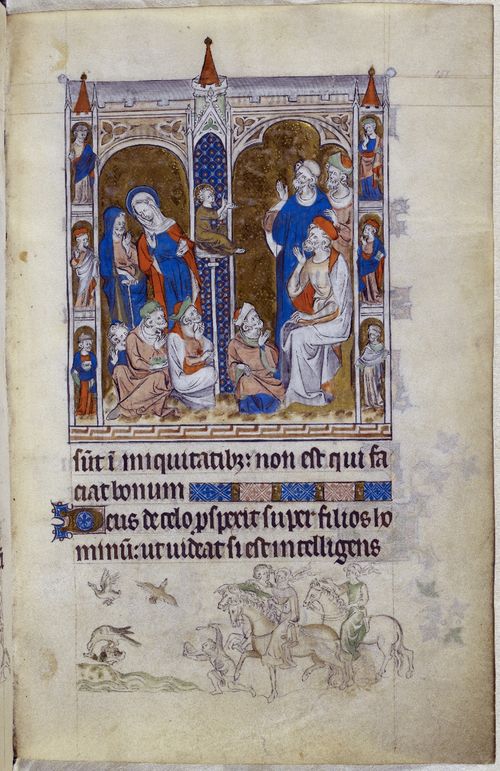 sūt ī iniquitatibz: non est qui fa
ciat bonum
Deus de celo pspexit super filios ho
minū: ut videat si est intelligens